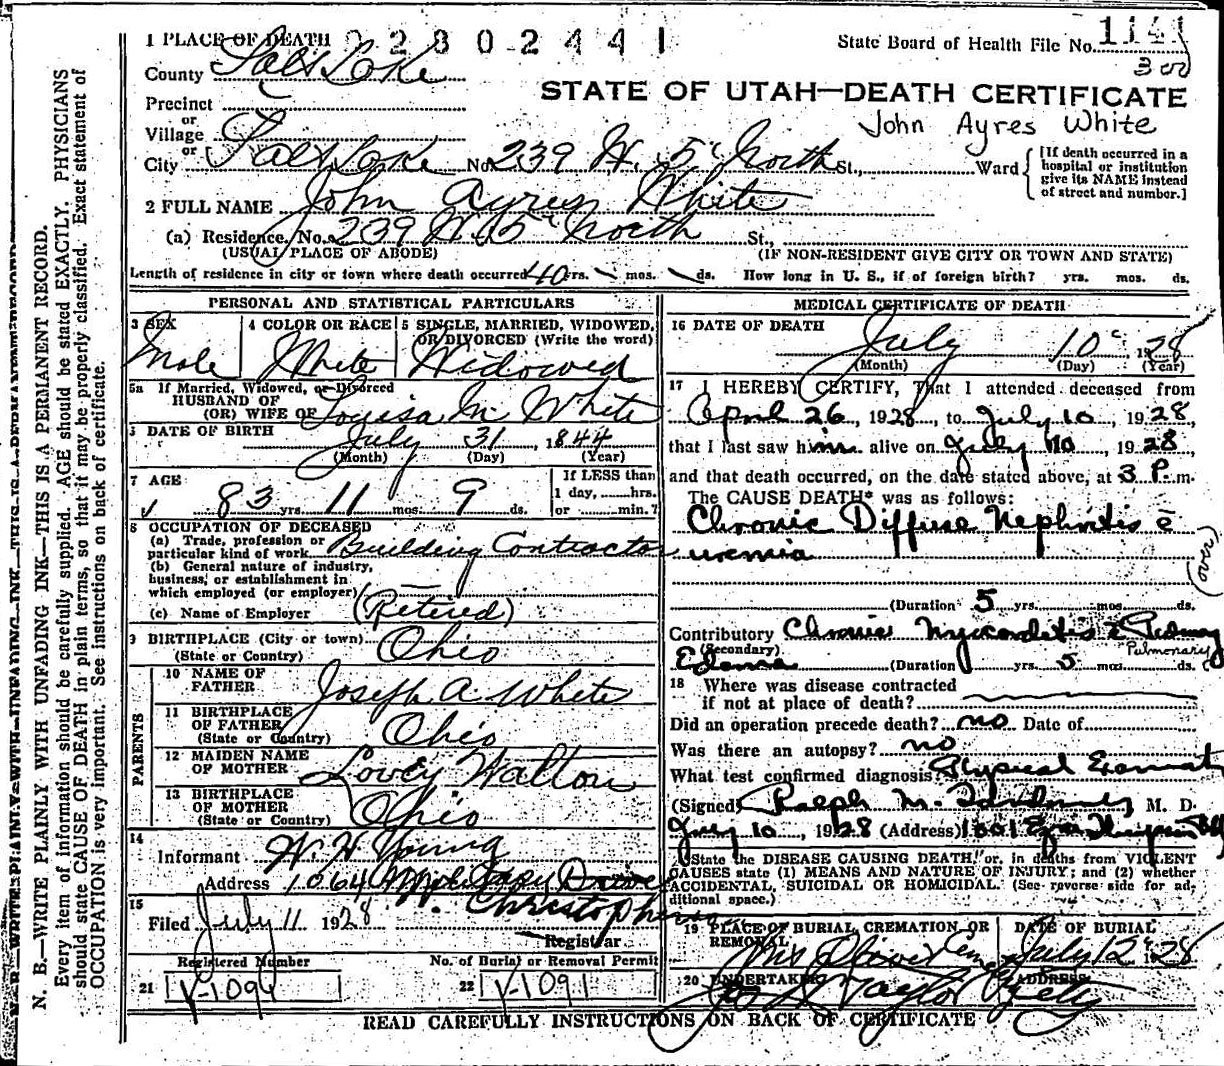 1 PLACE OF DEATH 2 8 0 2 4 4 1
State Board of Health File No. 1141
300
County Salt Lake
STATE OF UTAH—DEATH CERTIFICATE
Precinct
or
Village
John Ayres White
or
City Salt Lake No. 239 W. 5" North St., Ward
[If death occurred in a
hospital or institution
give its NAME instead
of street and number.]
2 FULL NAME John Ayres White
(a) Residence. No. 239 W. 5" North St.,
(USUAL PLACE OF ABODE) (IF NON-RESIDENT GIVE CITY OR TOWN AND STATE)
Length of residence in city or town where death occurred 40 yrs. mos. ds. How long in U. S., if of foreign birth? yrs. mos. ds.
PERSONAL AND STATISTICAL PARTICULARS
3 SEX
Male
4 COLOR OR RACE
White
5 SINGLE, MARRIED, WIDOWED,
OR DIVORCED (Write the word)
Widowed
5a If Married, Widowed, or Divorced
HUSBAND OF
(OR) WIFE OF Louisa M White
DATE OF BIRTH July 31, 1844
(Month) (Day) (Year)
7 AGE
83 yrs. 11 mos. 9 ds.
If LESS than
1 day, hrs.
or min.?
8 OCCUPATION OF DECEASED
(a) Trade, profession or
particular kind of work Building Contractor
(b) General nature of industry,
business, or establishment in
which employed (or employer)
(c) Name of Employer (Retired)
9 BIRTHPLACE (City or town)
(State or Country) Ohio
PARENTS
10 NAME OF
FATHER Joseph A White
11 BIRTHPLACE
OF FATHER
(State or Country) Ohio
12 MAIDEN NAME
OF MOTHER Lovey Walton
13 BIRTHPLACE
OF MOTHER
(State or Country) Ohio
14
Informant W. H Young
Address 1064 Military Drive
15
Filed July 11 1928 Christopherson
Registrar
Registered Number
21 V-1091
No. of Burial or Removal Permit
22 V-1091
MEDICAL CERTIFICATE OF DEATH
16 DATE OF DEATH
July 10", 1928
(Month) (Day) (Year)
17 I HEREBY CERTIFY, That I attended deceased from
April 26, 1928, to July 10, 1928,
that I last saw him alive on July 10, 1928,
and that death occurred, on the date stated above, at 3 P. m.
The CAUSE DEATH* was as follows:
Chronic Diffuse Nephritis c̄
uremia
(Duration 5 yrs. mos. ds.
Contributory Chronic Myocarditis c̄
(Secondary) Pulmonary
Edema (Duration yrs. 5 mos. ds.
18 Where was disease contracted
if not at place of death?
Did an operation precede death? no Date of
Was there an autopsy? no
What test confirmed diagnosis? Physical
(Signed) Ralph M. M. D.
July 10, 1928 (Address)
*State the DISEASE CAUSING DEATH, or, in deaths from VIOLENT
CAUSES state (1) MEANS AND NATURE OF INJURY; and (2) whether
ACCIDENTAL, SUICIDAL OR HOMICIDAL. (See reverse side for ad-
ditional space.)
19 PLACE OF BURIAL CREMATION OR
REMOVAL
Mt Olivet Cem
DATE OF BURIAL
July 12" 1928
20 UNDERTAKER
Taylor
ADDRESS
City
READ CAREFULLY INSTRUCTIONS ON BACK OF CERTIFICATE
N. B.—WRITE PLAINLY WITH UNFADING INK—THIS IS A PERMANENT RECORD.
Every item of information should be carefully supplied. AGE should be stated EXACTLY. PHYSICIANS
should state CAUSE OF DEATH in plain terms, so that it may be properly classified. Exact statement of
OCCUPATION is very important. See instructions on back of certificate.